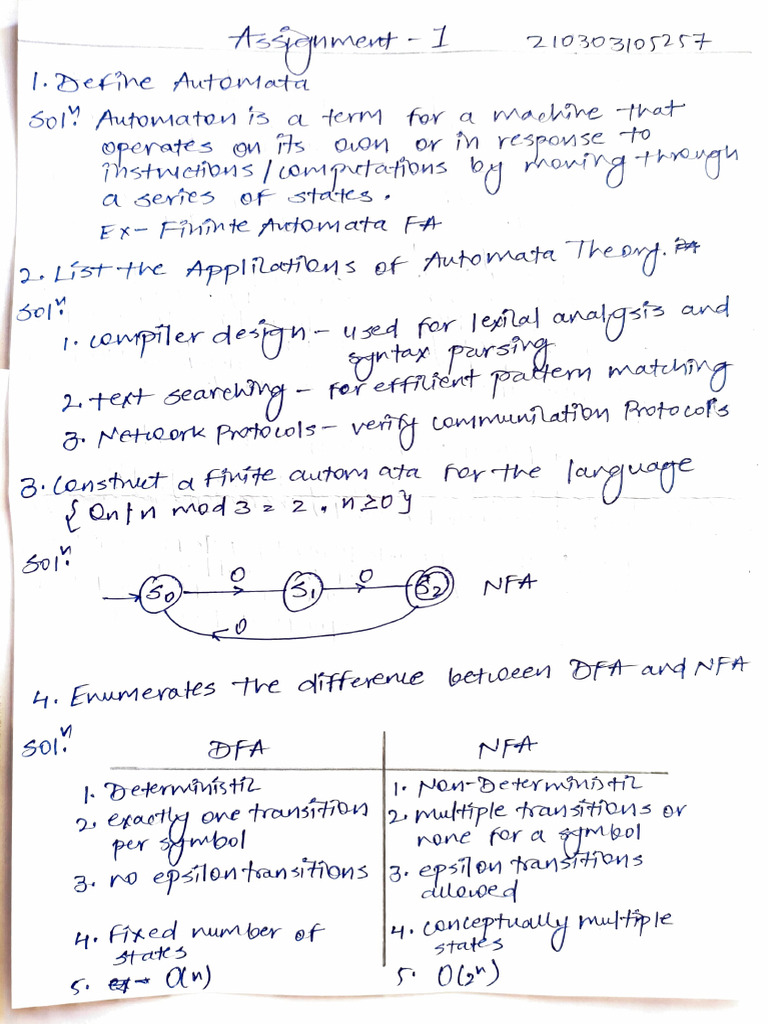 Assignment - 1 210303105257
1. Define Automata
Solⁿ: Automaton is a term for a machine that
operates on its own or in response to
instructions / computations by moving through
a series of states.
Ex- Fininte Automata FA
2. List the Applications of Automata Theory.
Solⁿ:
1. compiler design - used for lexical analysis and
syntax parsing
2. text searching - for efficient pattern matching
3. Network Protocols - verify communication Protocols
3. Construct a finite automata for the language
{ 0n | n mod 3 = 2, n ≥ 0 }
Solⁿ:
0 0
S0 S1 S2 NFA
0
4. Enumerates the difference between DFA and NFA
Solⁿ:
DFA NFA
1. Deterministic 1. Non-Deterministic
2. exactly one transition 2. multiple transitions or
per symbol none for a symbol
3. no epsilon transitions 3. epsilon transitions
allowed
4. fixed number of 4. conceptually multiple
states states
5. O(n) 5. O(2ⁿ)